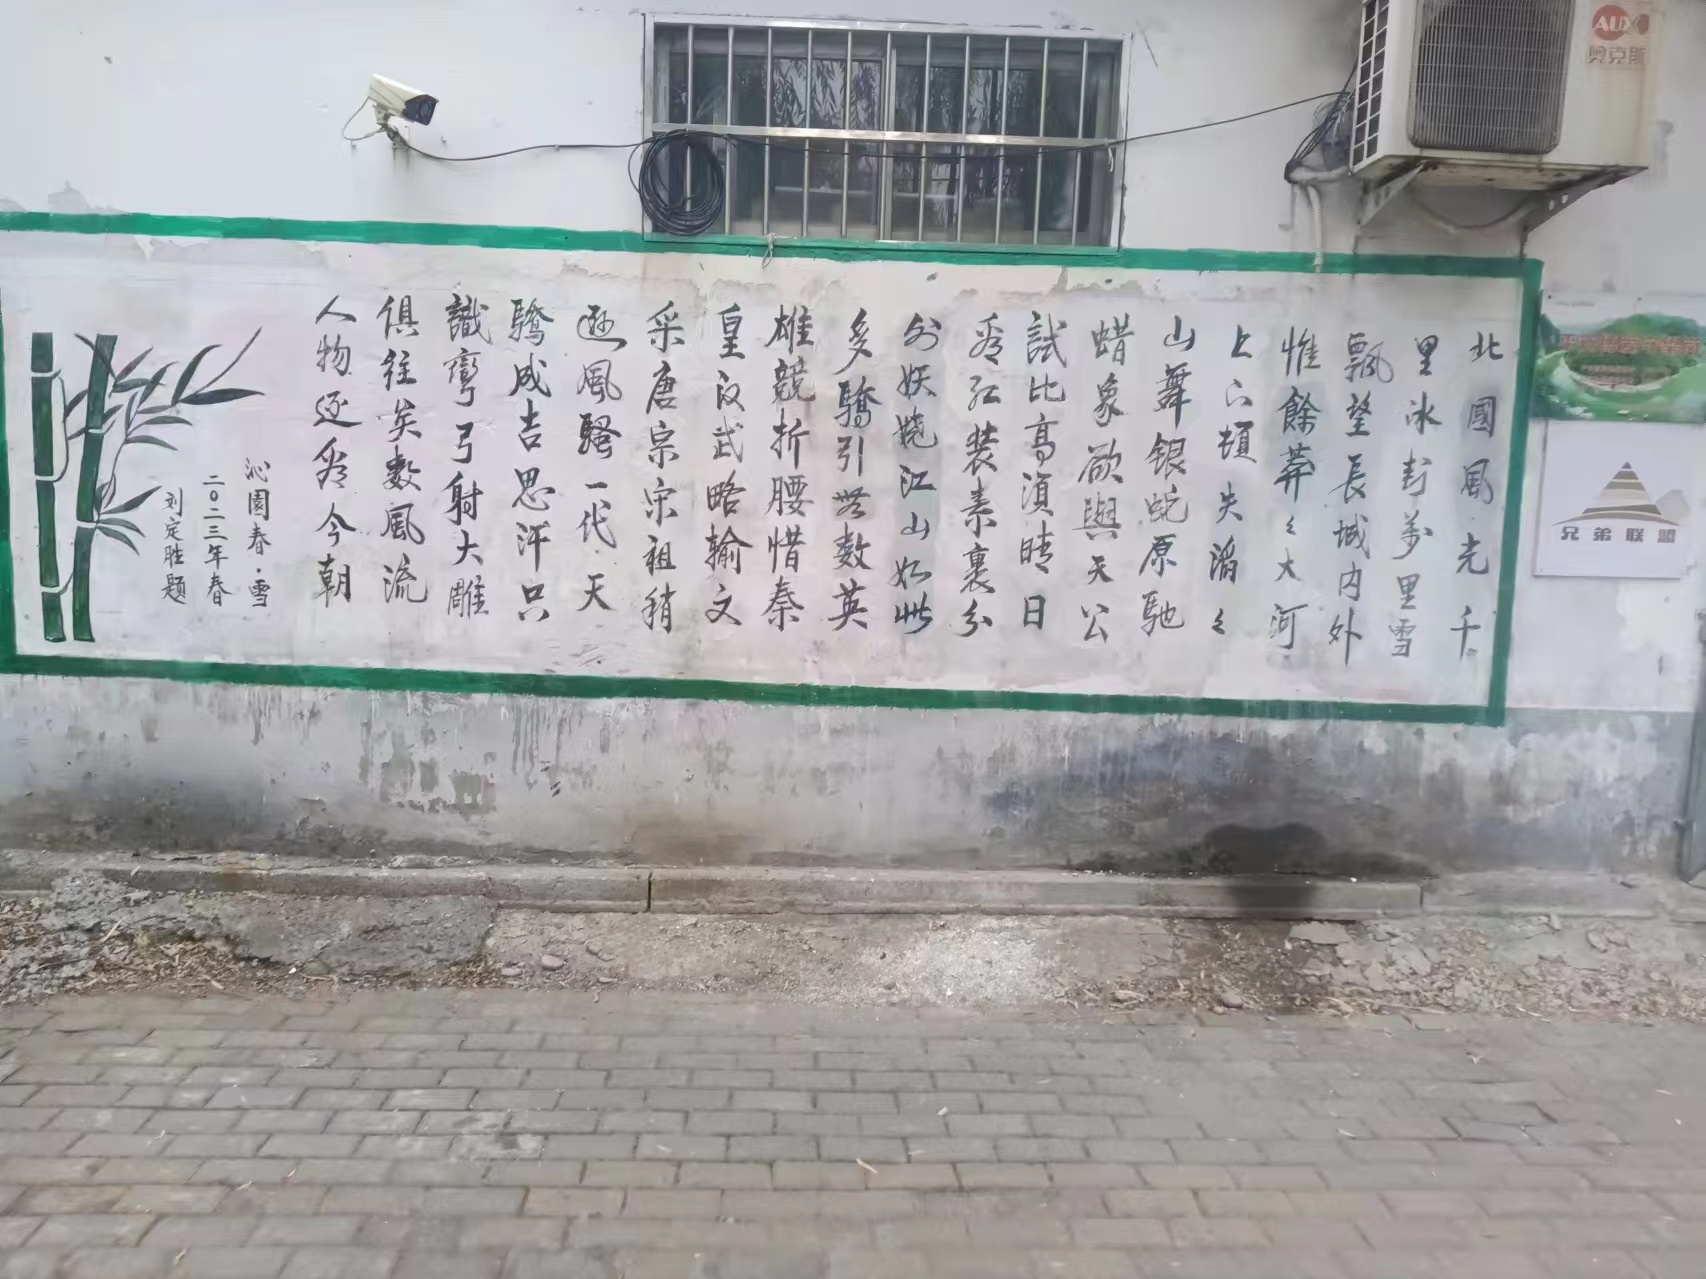 北國風光千
里冰封萬里雪
飄望長城内外
惟餘莽々大河
上下頓失滔々
山舞银蛇原馳
蜡象欲與天公
試比高須晴日
看红装素裹分
外妖娆江山如此
多驕引無数英
雄競折腰惜秦
皇汉武略输文
采唐宗宋祖稍
逊風騷一代天
驕成吉思汗只
識彎弓射大雕
俱往矣數風流
人物还看今朝
沁園春·雪
二〇二三年春
刘定胜题
AUX
奥克斯
兄弟联盟